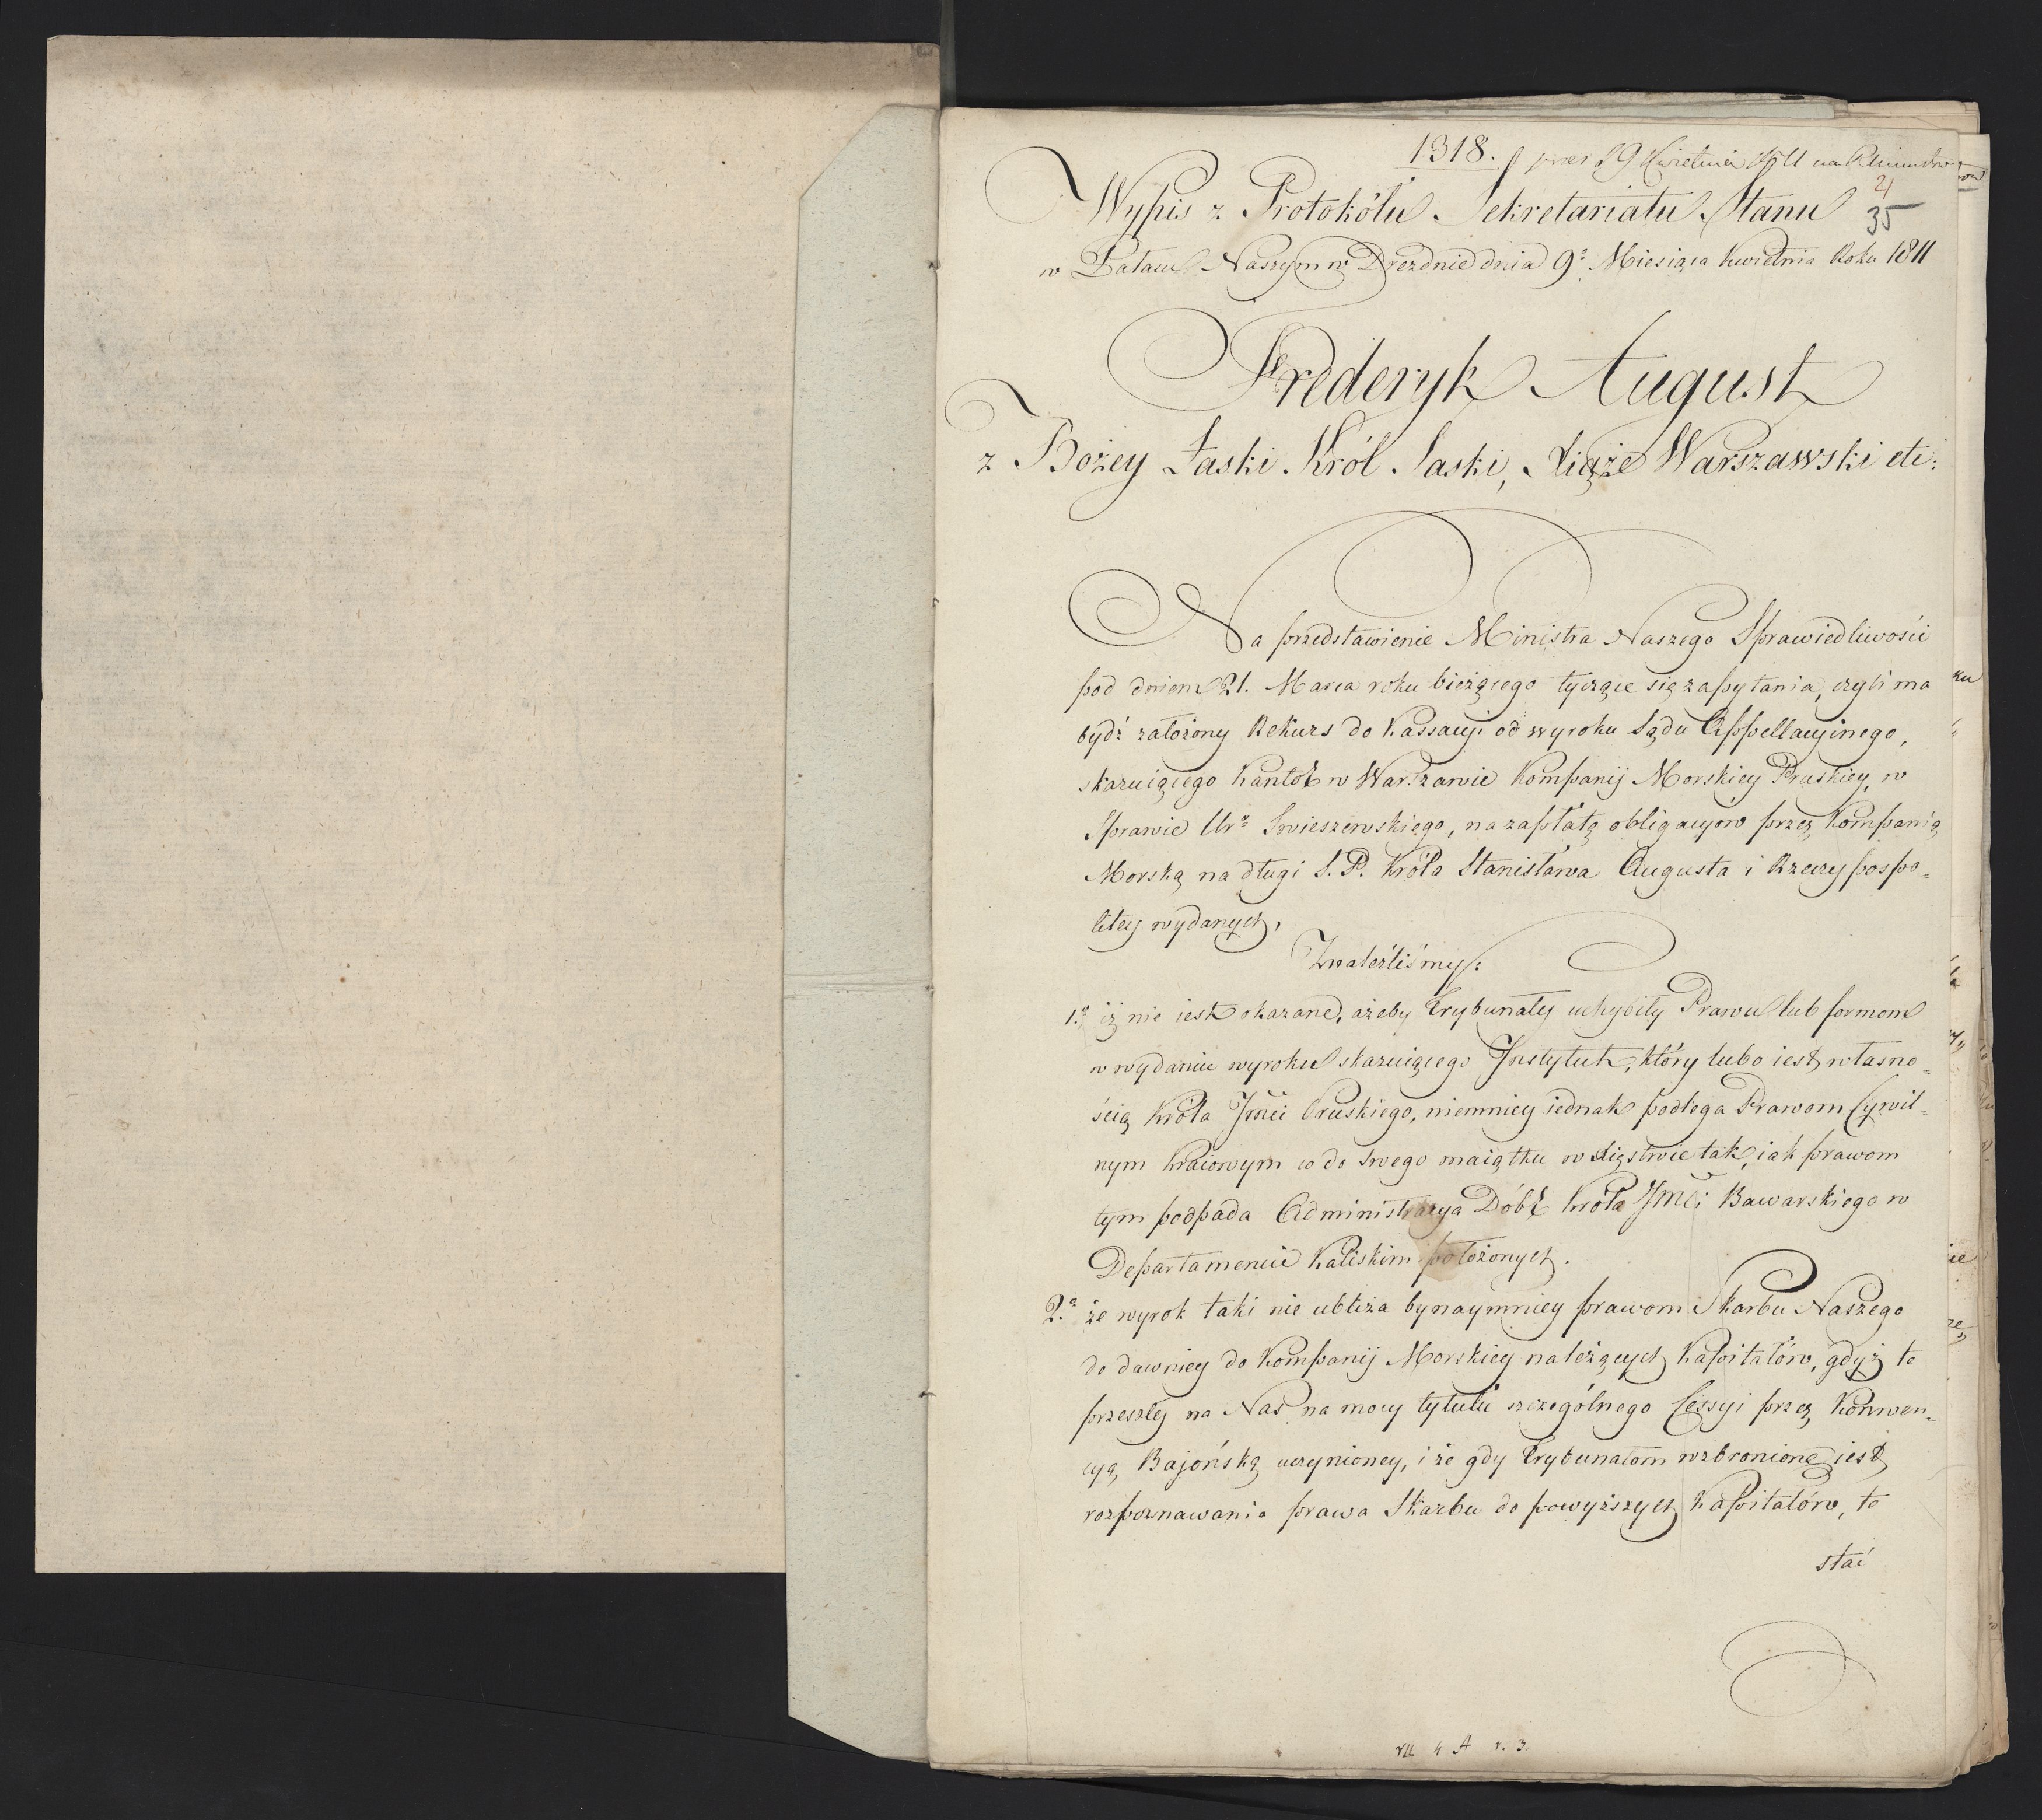 1318. 19 Kwietnia 1811 na
21
Wypis z Protokólu Sekretariatu Stanu 35
w Pałacu Naszym w Dreznie dnia 9º Miesiąca Kwietnia Roku 1811
Frederyk August
z Bożey Łaski Król Saski, Xiąże Warszawski etc:
Na przedstawienie Ministra Naszego Sprawiedliwości
pod dniem 21. Marca roku bieżącego tyczące się zapytania, czyli ma
bydź założony Rekurs do Kassacyi od wyroku Sądu Appellacyinego,
skazuiącego Kantor w Warszawie Kompanij Morskiey Pruskiey, w
Sprawie Urº Swieszewskiego, na zapłatę obligacyiow przez Kompanią
Morską na długi S. P. Króla Stanisława Augusta i Rzeczypospo=
litey wydanych,
Znaleźliśmy:
1.º iż nie iest okazane, ażeby Trybunały uchybiły Prawu lub formom
w wydaniu wyroku skazuiącego Instytut, który lubo iest własno=
ścią Króla Jmci Pruskiego, niemniey iednak podlega Prawom Cywil=
nym kraiowym co do swego maiątku w Xięstwie tak, iak prawom
tym podpada Administracya Dóbr Króla Jmci Bawarskiego w
Departamencie Kaliskim położonych.
2.º że wyrok taki nie ubliża bynaymniey prawom Skarbu Naszego
do dawniey do Kompanij Morskiey należących Kapitałów, gdyż te
przeszły na Nas na mocy tytułu szczególnego Cessyi przez Konwen=
cyą Bajońską uczynioney, i że gdy Trybunałom wzbronione iest
rozpoznawania prawa Skarbu do powyższych Kapitałów, to
stać
VII 4 A r. 3